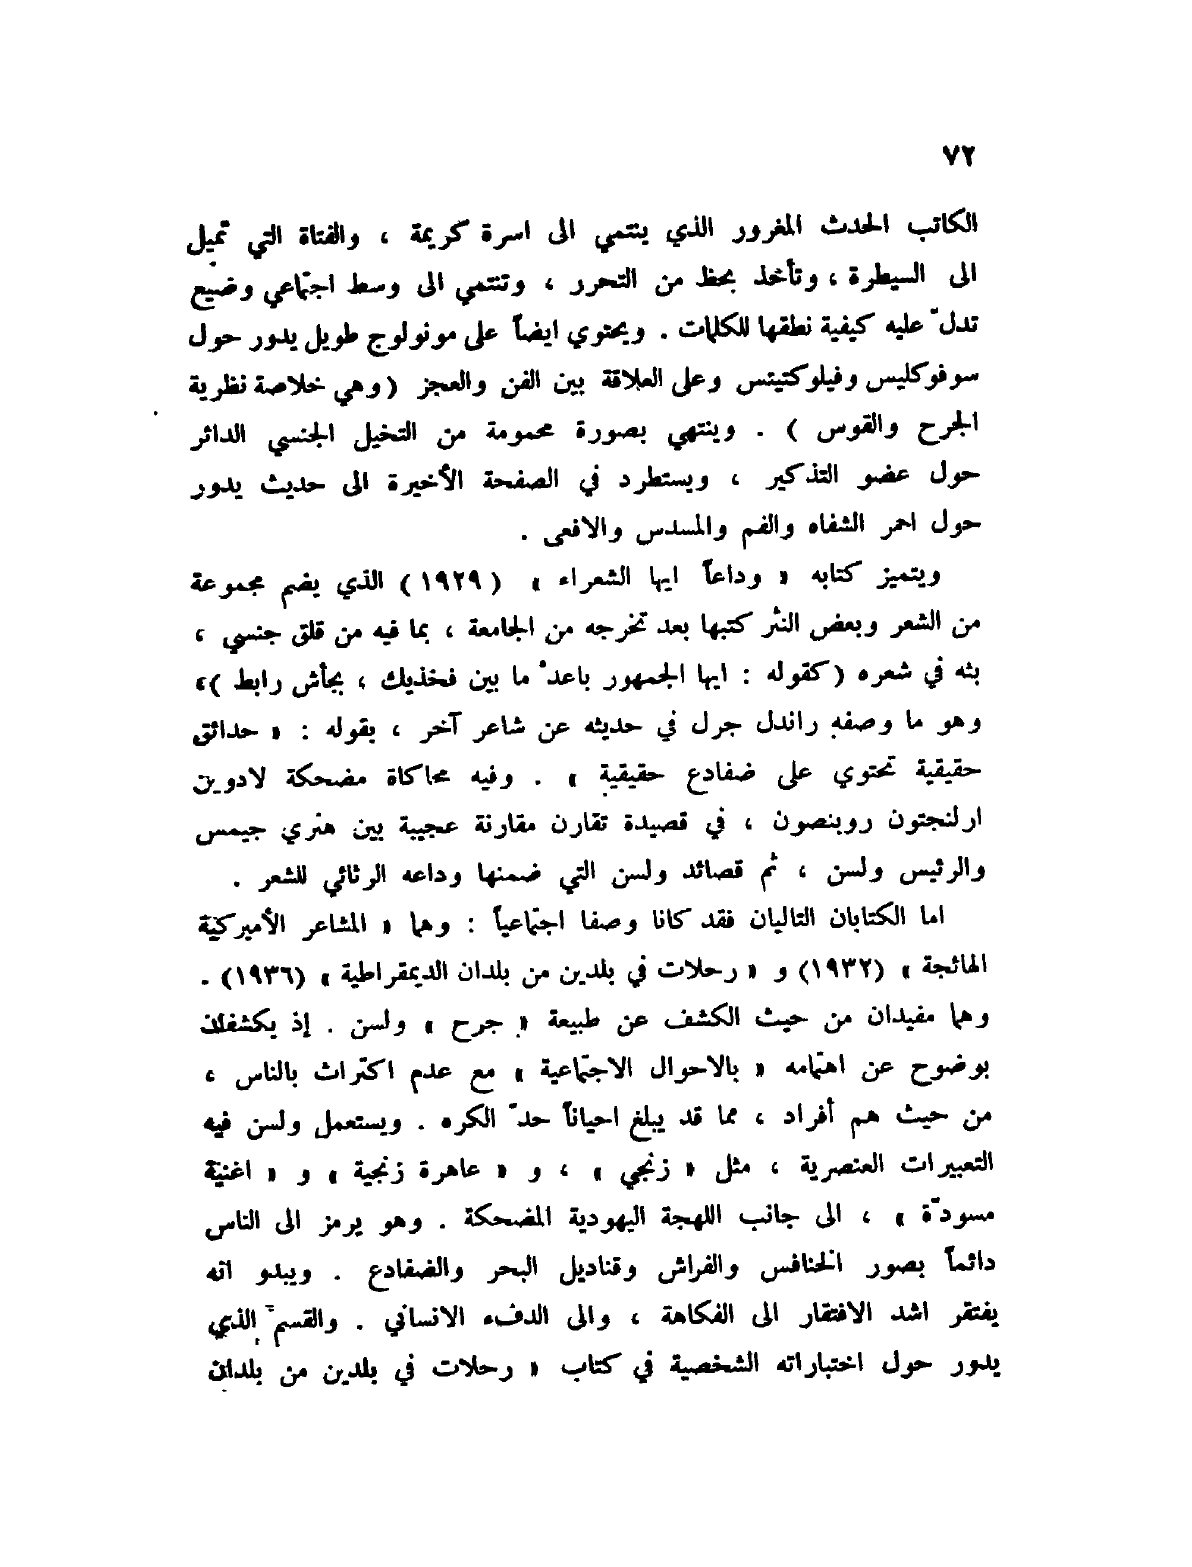 ٧٢
الكاتب الحدث المغرور الذي ينتمي الى اسرة كريمة ، والفتاة التي تميل
الى السيطرة ، وتأخذ بحظ من التحرر ، وتنتمي الى وسط اجتماعي وضيع
تدلّ عليه كيفية نطقها للكلمات . ويحتوي ايضاً على مونولوج طويل يدور حول
سوفوكليس وفيلوكتيتس وعلى العلاقة بين الفن والعجز ( وهي خلاصة نظرية
الجرح والقوس ) . وينتهي بصورة محمومة من التخيل الجنسي الدائر
حول عضو التذكير ، ويستطرد في الصفحة الأخيرة الى حديث يدور
حول احمر الشفاه والفم والمسدس والافعى .
ويتميز كتابه « وداعاً ايها الشعراء » ( ١٩٢٩ ) الذي يضم مجموعة
من الشعر وبعض النثر كتبها بعد تخرجه من الجامعة ، بما فيه من قلق جنسي ،
بثه في شعره ( كقوله : ايها الجمهور باعدْ ما بين فخذيك ، بجأش رابط ) ،
وهو ما وصفه راندل جرل في حديثه عن شاعر آخر ، بقوله : « حدائق
حقيقية تحتوي على ضفادع حقيقية » . وفيه محاكاة مضحكة لادوين
ارلنجتون روبنصون ، في قصيدة تقارن مقارنة عجيبة بين هنري جيمس
والرئيس ولسن ، ثم قصائد ولسن التي ضمنها وداعه الرثائي للشعر .
اما الكتابان التاليان فقد كانا وصفا اجتماعياً : وهما « المشاعر الأميركية
الهائجة » (١٩٣٢) و « رحلات في بلدين من بلدان الديمقراطية » (١٩٣٦) .
وهما مفيدان من حيث الكشف عن طبيعة « جرح » ولسن . إذ يكشفان
بوضوح عن اهتمامه « بالاحوال الاجتماعية » مع عدم اكتراث بالناس ،
من حيث هم أفراد ، مما قد يبلغ احياناً حدّ الكره . ويستعمل ولسن فيه
التعبيرات العنصرية ، مثل « زنجي » ، و « عاهرة زنجية » و « اغنية
مسودّة » ، الى جانب اللهجة اليهودية المضحكة . وهو يرمز الى الناس
دائماً بصور الخنافس والفراش وقناديل البحر والضفادع . ويبدو انه
يفتقر اشد الافتقار الى الفكاهة ، والى الدفء الانساني . والقسم الذي
يدور حول اختباراته الشخصية في كتاب « رحلات في بلدين من بلدان